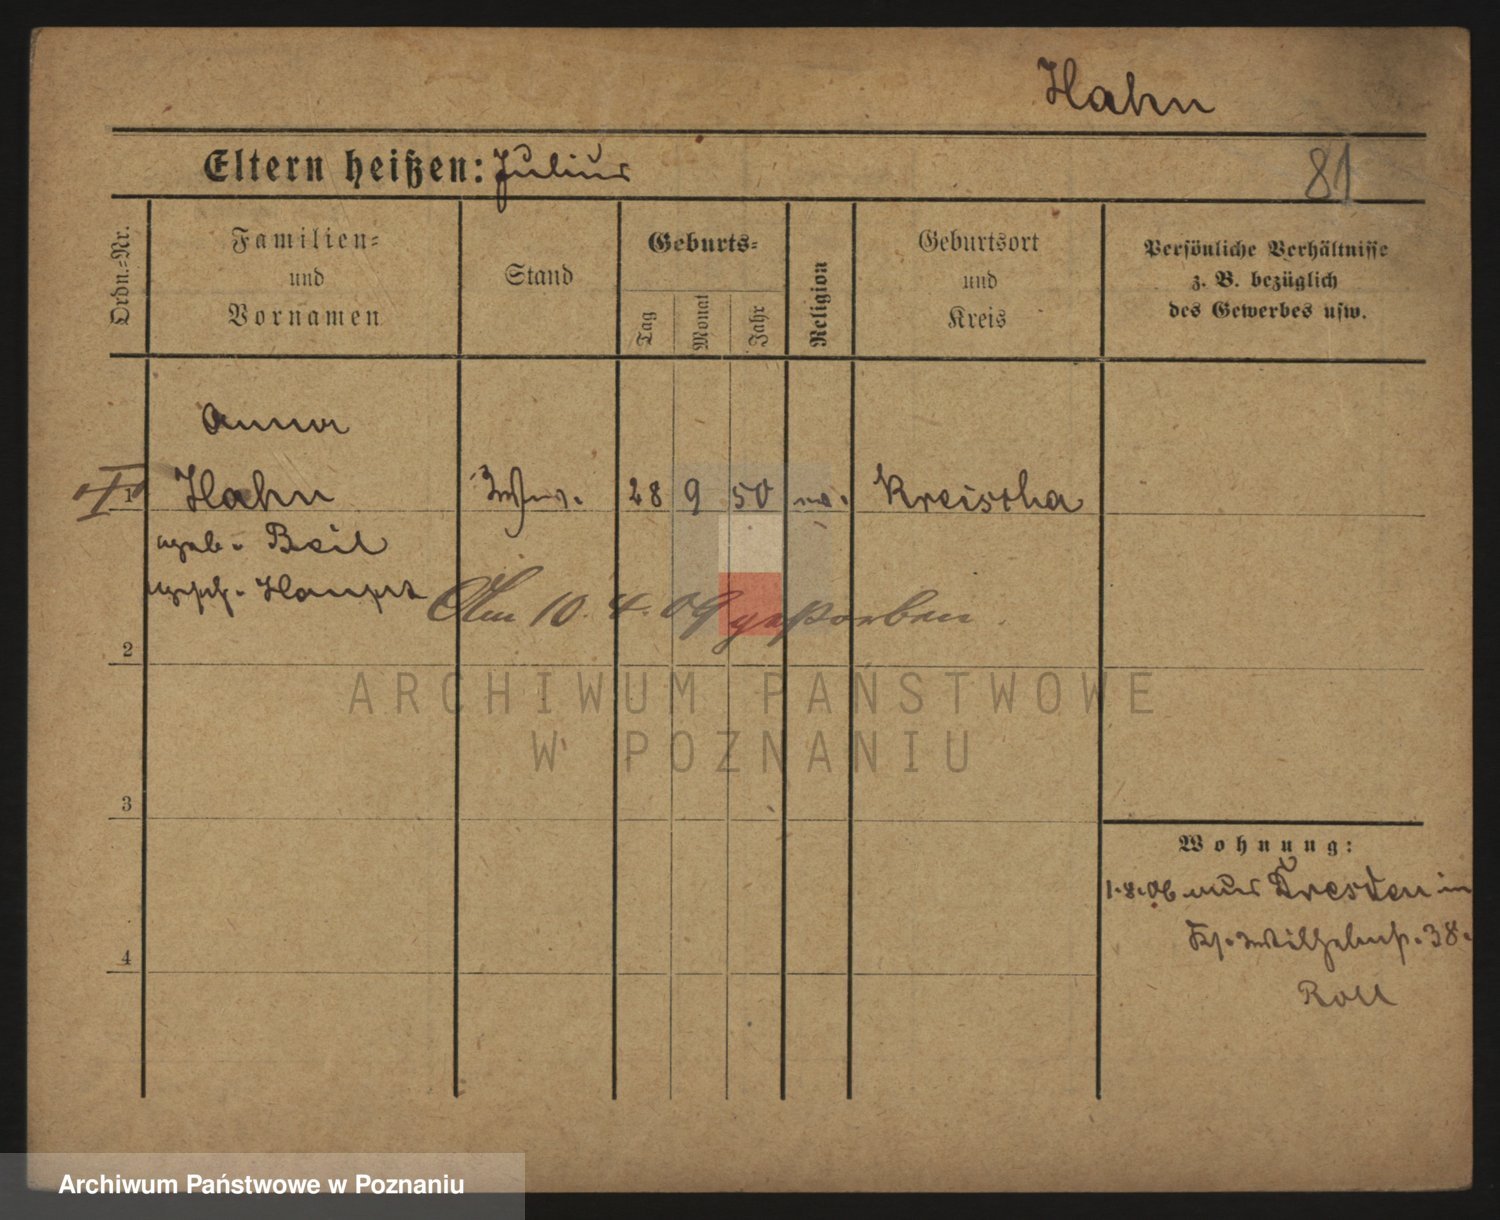 Hahn
Eltern heißen: Julius
81
Ordn.-Nr.
Familien-
und
Vornamen
Stand
Geburts-
Tag
Monat
Jahr
Religion
Geburtsort
und
Kreis
Persönliche Verhältnisse
z. B. bezüglich
des Gewerbes usw.
Anna
1 Hahn 28 9 50 ev.
geb. Beil
gesch. Haupt
Am 10. 4. 09 gestorben.
2
ARCHIWUM PAŃSTWOWE
W POZNANIU
3
4
Wohnung:
1.8.06 aus Dresden in
38.
Archiwum Państwowe w Poznaniu